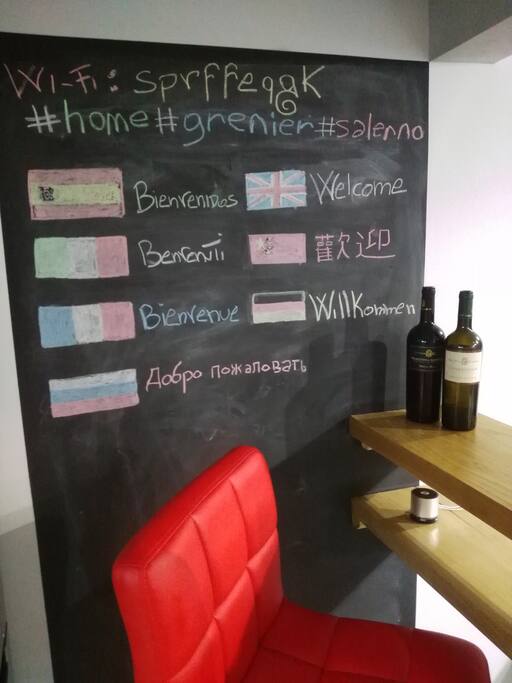 Wi-Fi: sprffeqgk
#home#grenier#salerno
Bienvenidos
Welcome
Benvenuti
歡迎
Bienvenue
Willkommen
Добро пожаловать